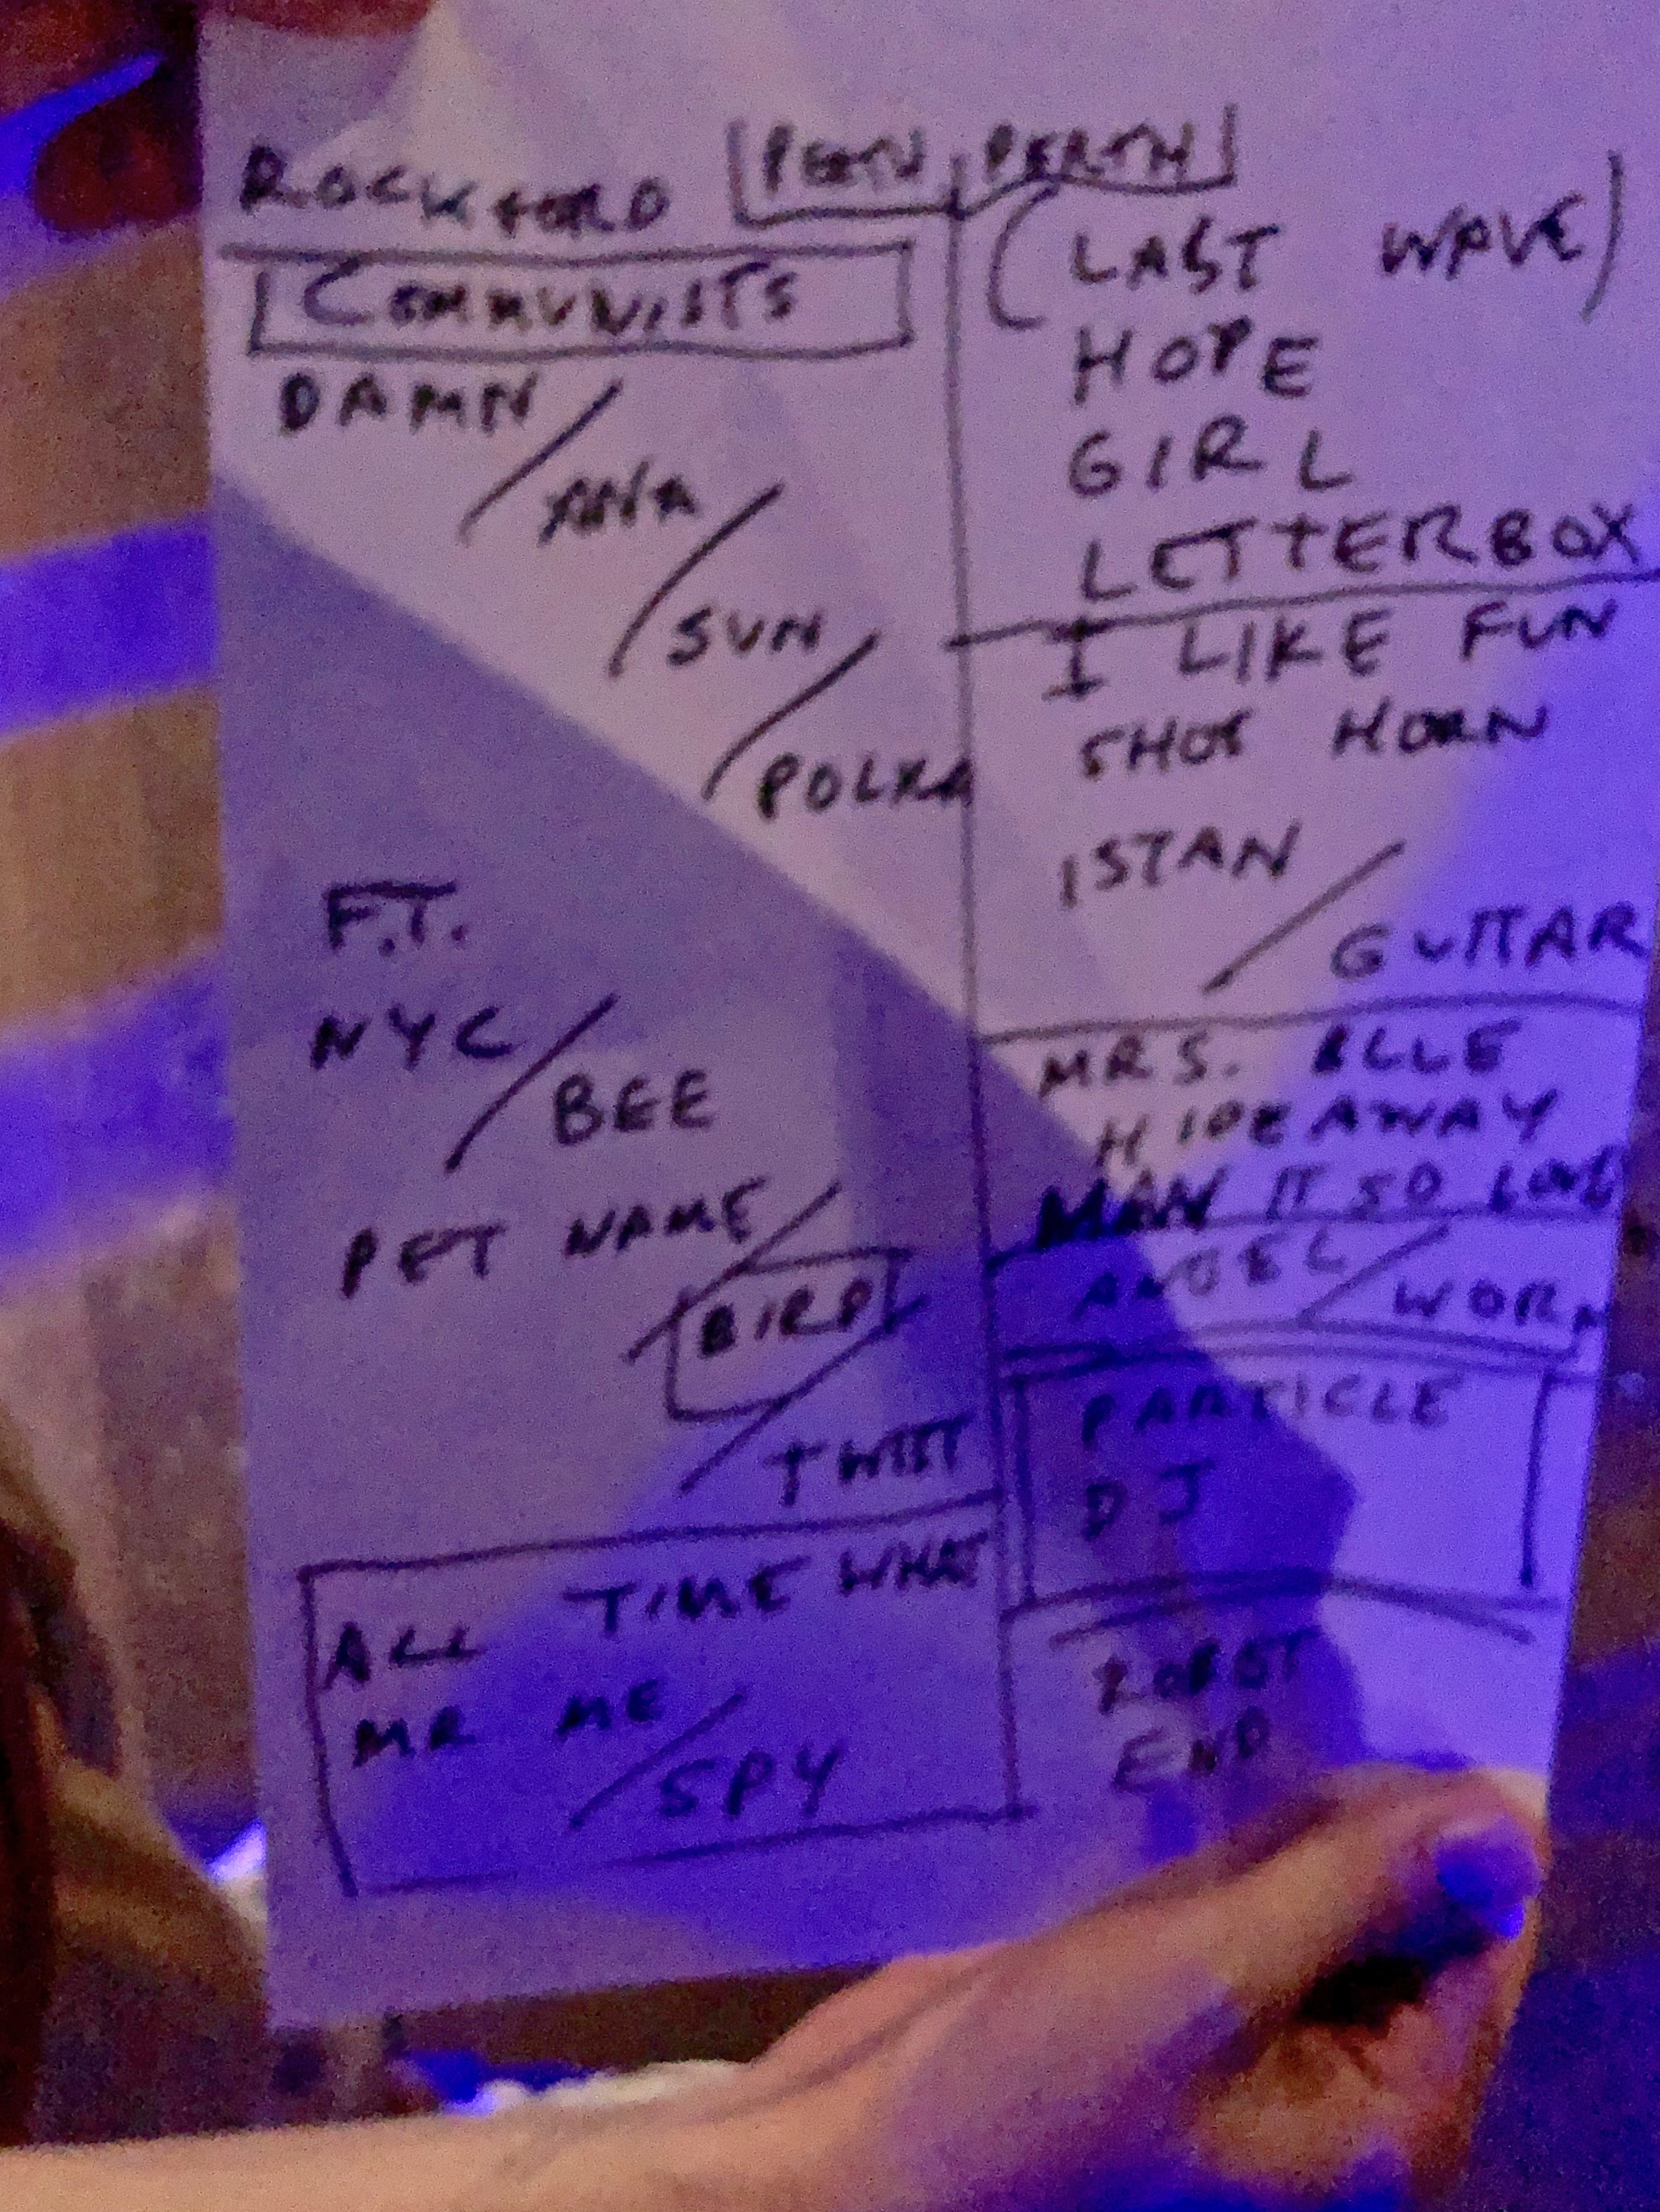 ROCKFORD
PERTH PERTH
COMMUNISTS
DAMN /
ANA /
SUN /
POLKA
F.T.
NYC /
BEE
PET NAME /
BIRD /
TWIST
ALL TIME WHAT
MR ME /
SPY
(LAST WAVE)
HOPE
GIRL
LETTERBOX
I LIKE FUN
SHOE HORN
ISTAN /
GUITAR
MRS. BLUE
HIDEAWAY
MAN IT SO LOUD
ANGEL /
WORM
PARTICLE
DJ
ROBOT
END